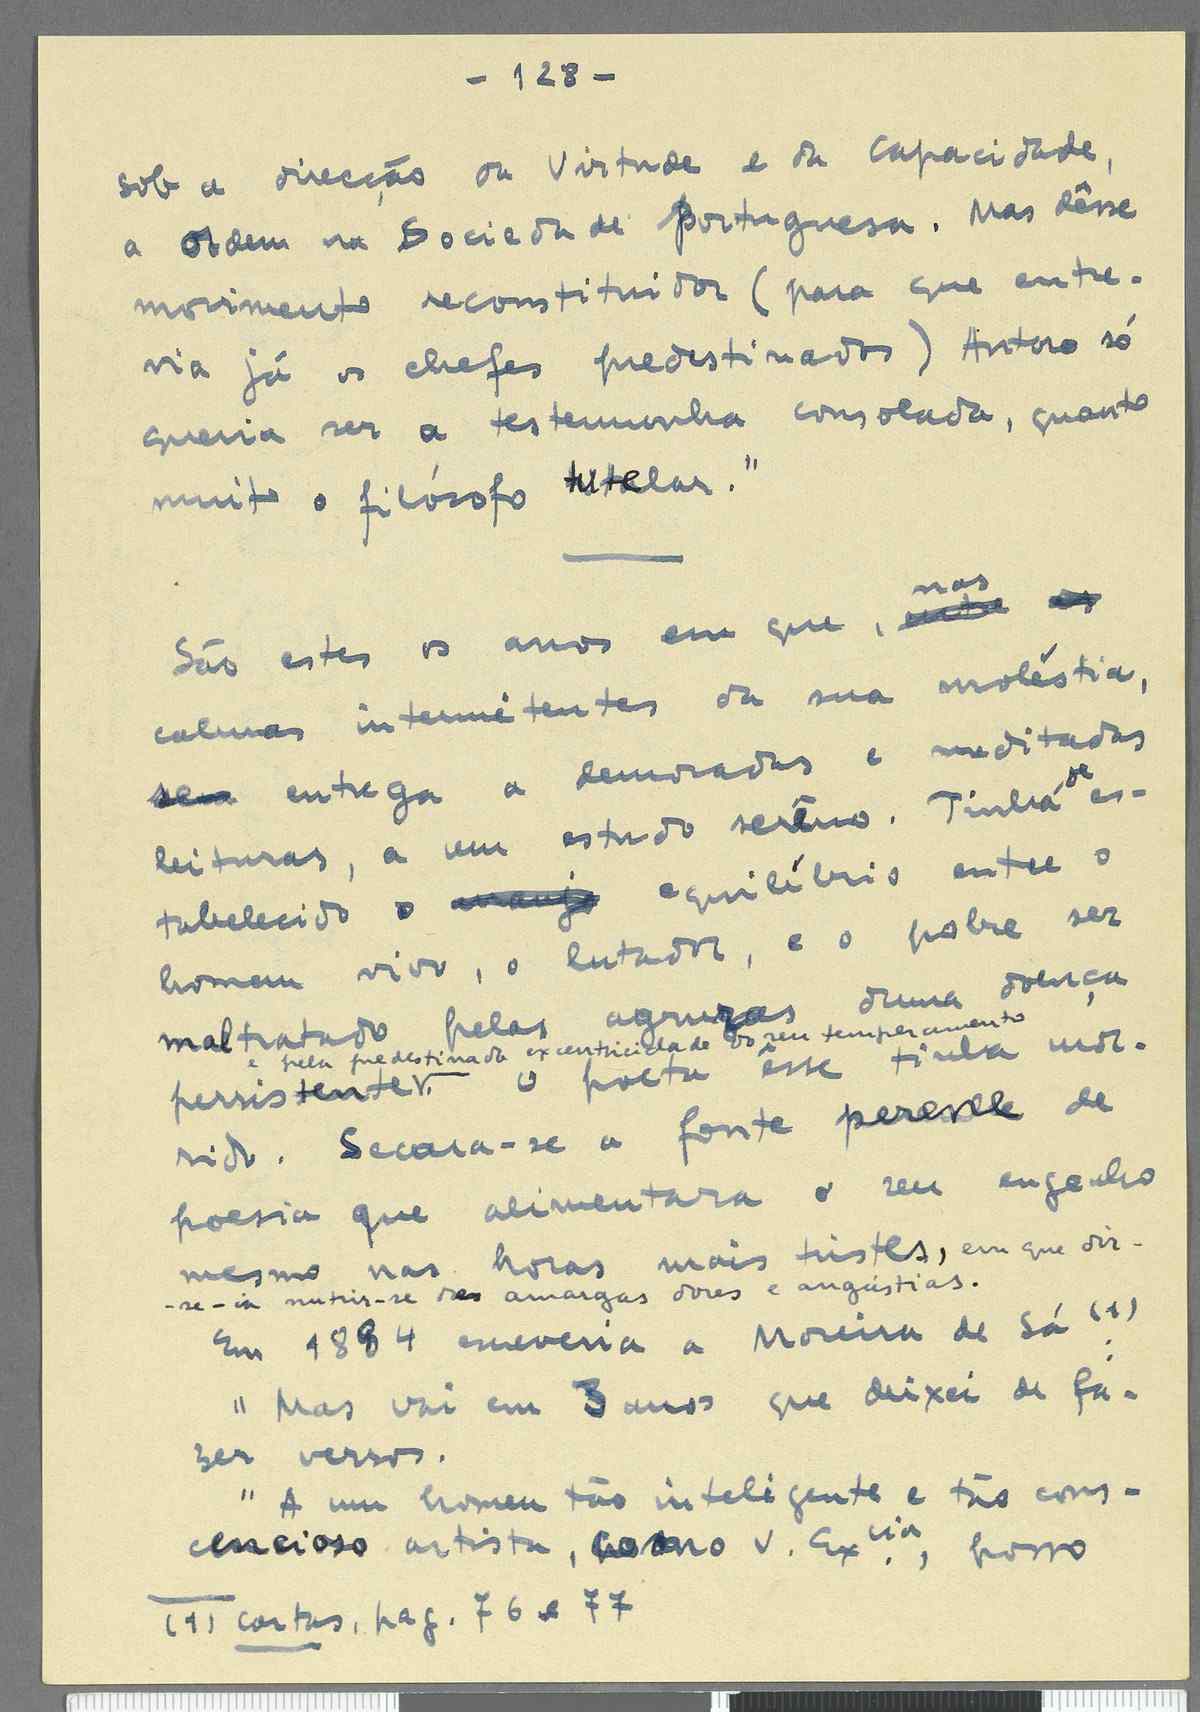 - 128 -
sob a direcção da Virtude e da Capacidade,
a Ordem na Sociedade Portuguesa. Mas dêsse
movimento reconstituidor (para que entre-
via já os chefes predestinados) Antero só
queria ser a testemunha consolada, quanto
muito o filósofo tutelar."
São estes os anos em que, nas
calmas intermitentes da sua moléstia,
se entrega a demoradas e meditadas
leituras, a um estudo serêno. Tinha se es-
tabelecido o equilíbrio entre o
homem vivo, o lutador, e o pobre ser
maltratado pelas agruras duma doença
e pela predestinada excentricidade do seu temperamento
persistente. O poeta êsse tinha mor-
rido. Secara-se a fonte perene de
poesia que alimentara o seu engenho
mesmo nas horas mais tristes, em que dir-
-se-ia nutrir-se das amargas dores e angústias.
Em 1884 escreveria a Moreira de Sá (1):
"Mas vai em 3 anos que deixei de fa-
zer versos.
"A um homem tão inteligente e tão cons-
cencioso artista, como V. Ex.cia, posso
(1) Cartas, pag. 76 e 77